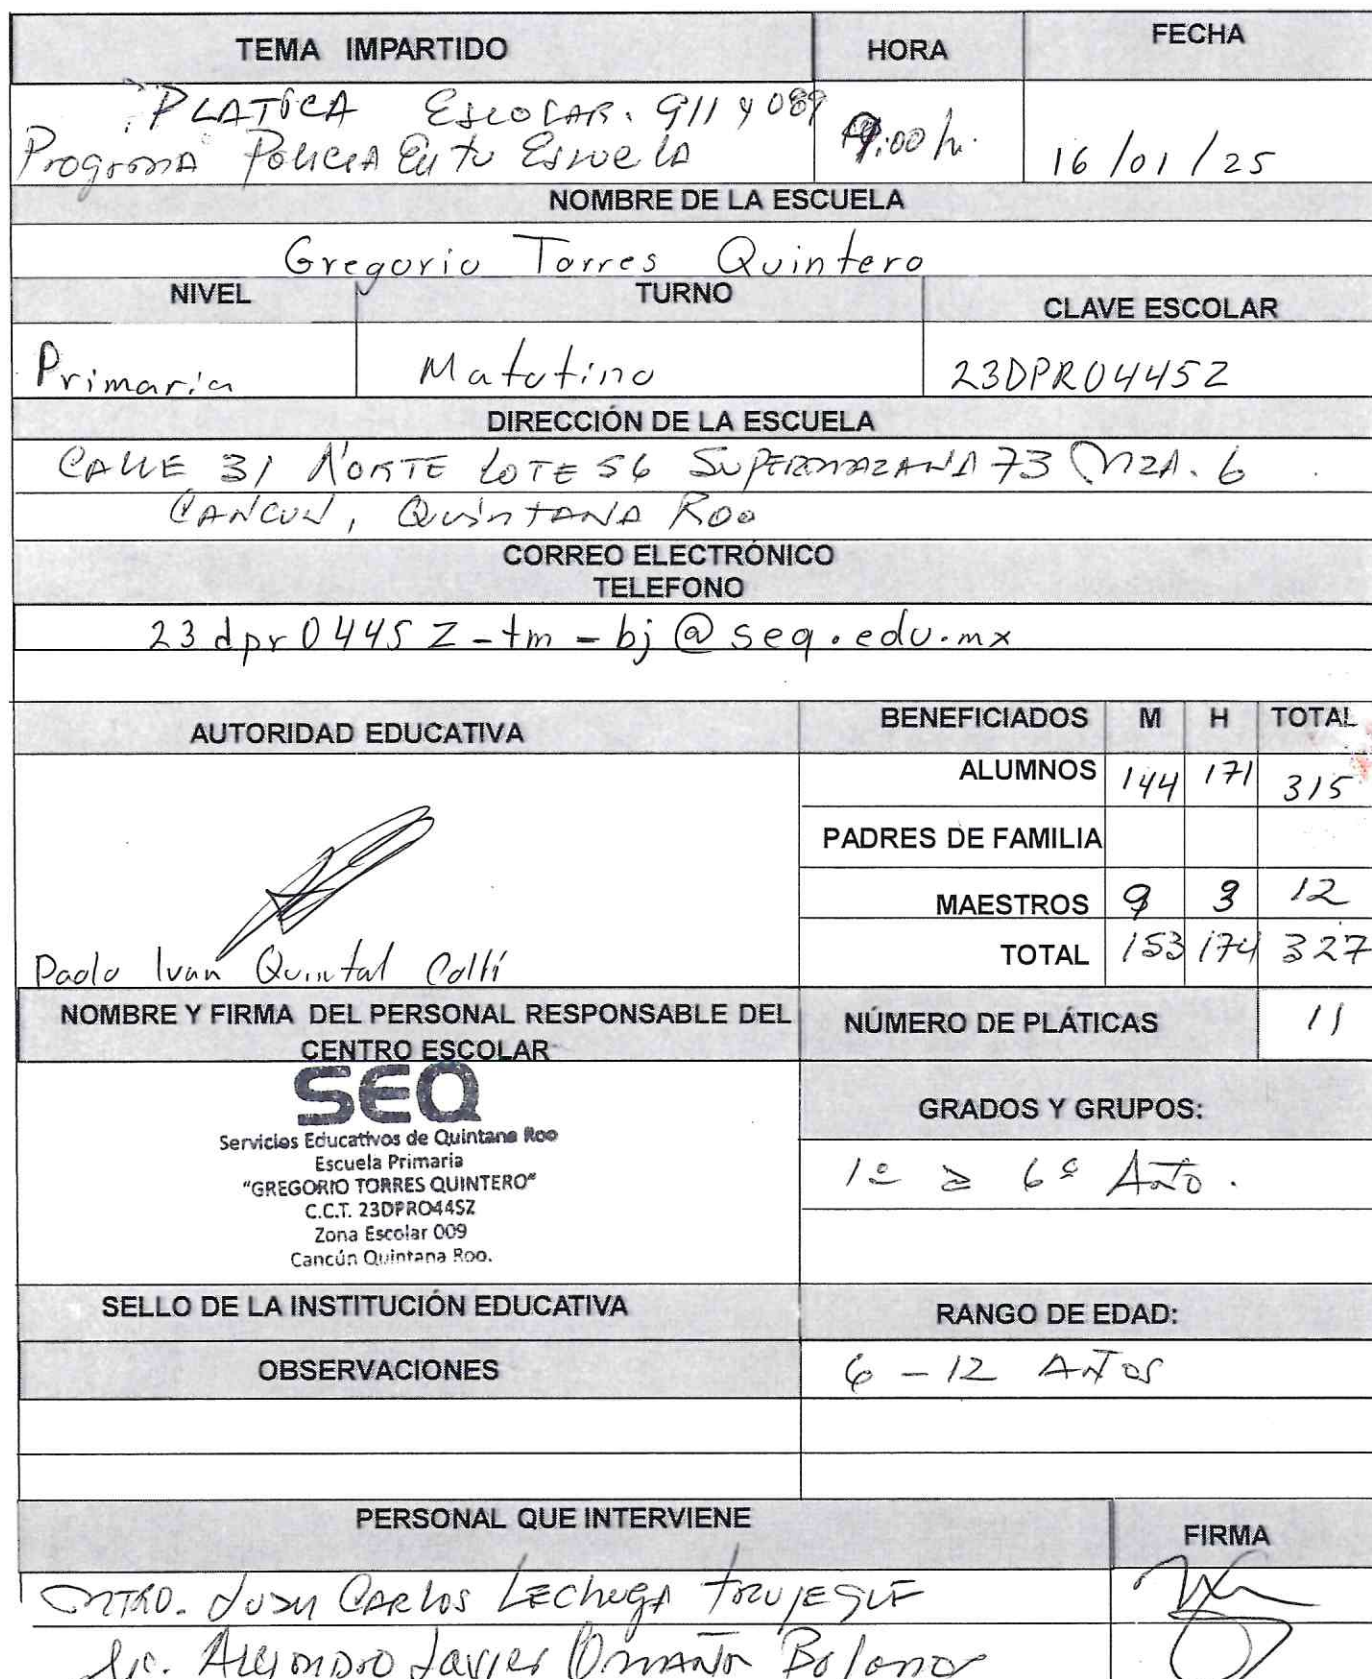 TEMA IMPARTIDO HORA FECHA
PLATICA ESCOLAR. 911 y 089
Programa Policia En tu Escuela 9:00 h. 16/01/25
NOMBRE DE LA ESCUELA
Gregorio Torres Quintero
NIVEL TURNO CLAVE ESCOLAR
Primaria Matutino 23DPR0445Z
DIRECCIÓN DE LA ESCUELA
CALLE 31 NORTE LOTE 56 SUPERMAZANA 73 MZA. 6
CANCUN, QUINTANA ROO
CORREO ELECTRÓNICO
TELEFONO
23dpr0445Z-tm-bj@seq.edu.mx
AUTORIDAD EDUCATIVA BENEFICIADOS M H TOTAL
ALUMNOS 144 171 315
PADRES DE FAMILIA
MAESTROS 9 3 12
Paolo Ivan Quintal TOTAL 153 174 327
NOMBRE Y FIRMA DEL PERSONAL RESPONSABLE DEL CENTRO ESCOLAR NÚMERO DE PLÁTICAS 11
SEQ
Servicios Educativos de Quintana Roo
Escuela Primaria
"GREGORIO TORRES QUINTERO"
C.C.T. 23DPRO445Z
Zona Escolar 009
Cancún Quintana Roo.
GRADOS Y GRUPOS:
1º a 6º AÑO.
SELLO DE LA INSTITUCIÓN EDUCATIVA RANGO DE EDAD:
OBSERVACIONES 6 - 12 AÑOS
PERSONAL QUE INTERVIENE FIRMA
MTRO. Juan Carlos Lechuga Trujeque
Lic. Alejandro Javier Omaña Bolanos